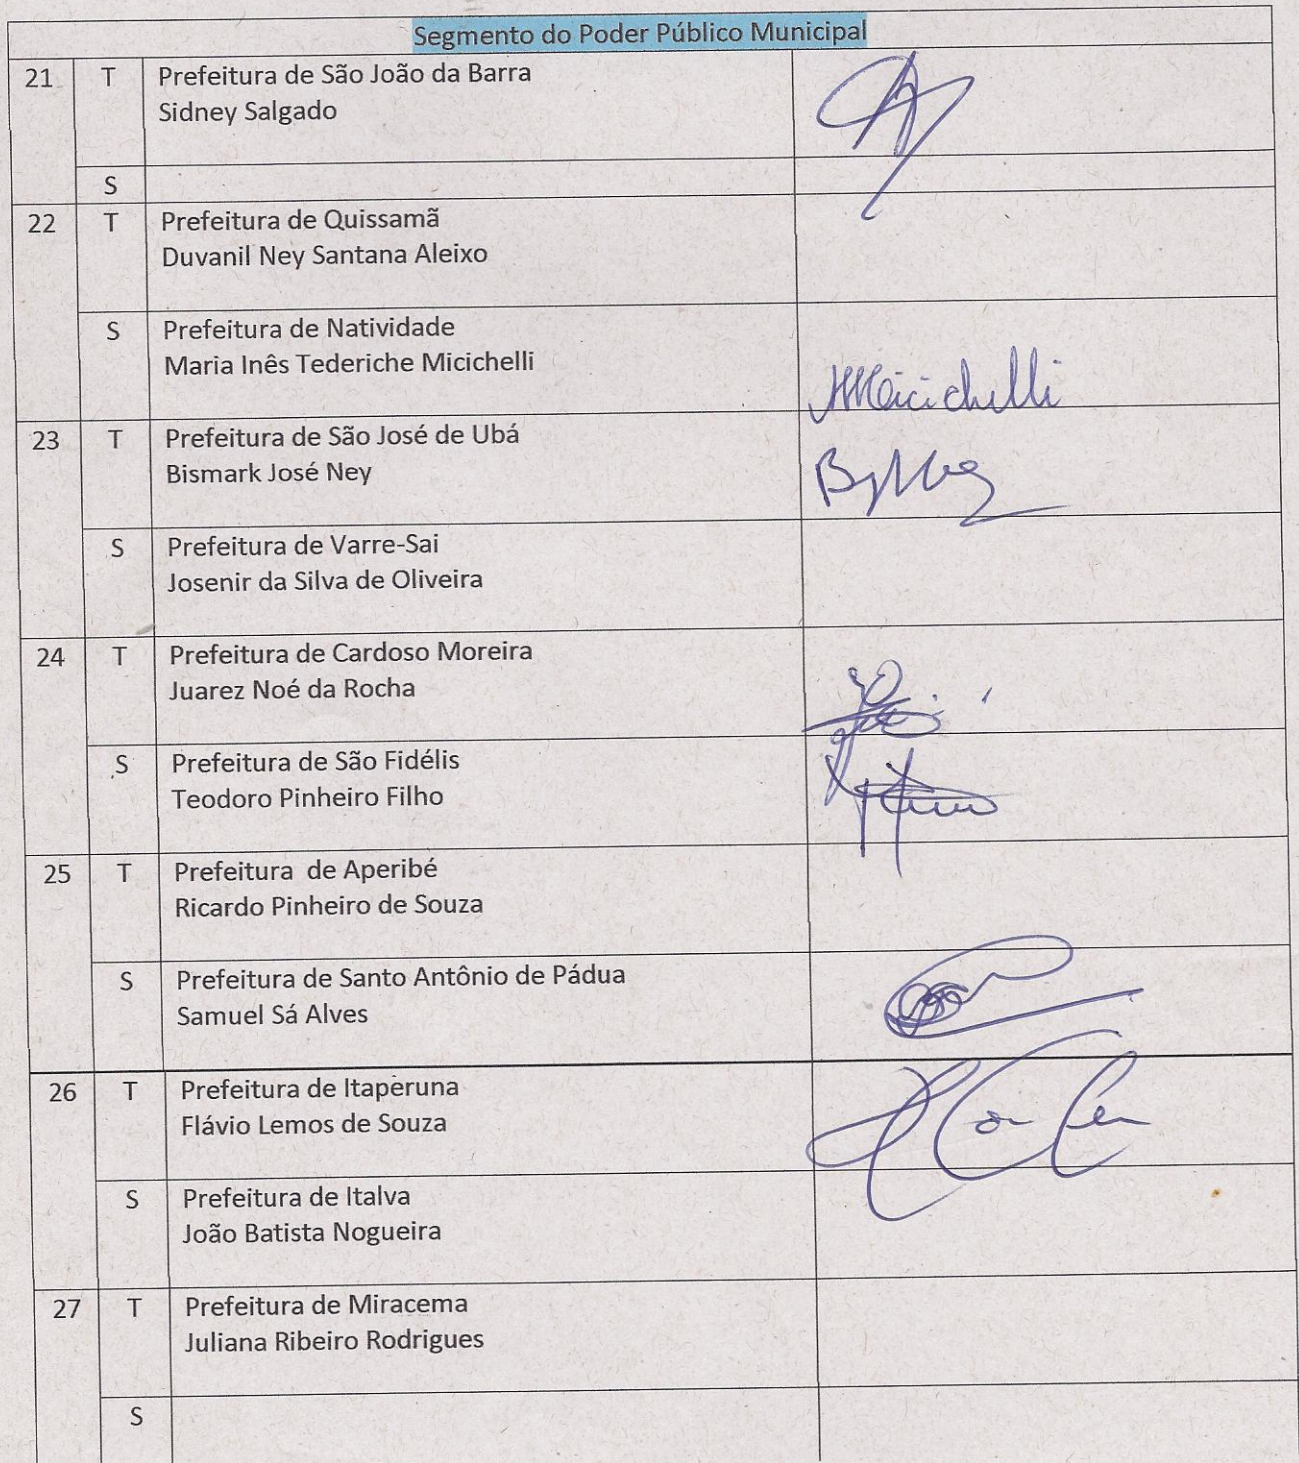 Segmento do Poder Público Municipal
21 T Prefeitura de São João da Barra
Sidney Salgado
S
22 T Prefeitura de Quissamã
Duvanil Ney Santana Aleixo
S Prefeitura de Natividade
Maria Inês Tederiche Micichelli
23 T Prefeitura de São José de Ubá
Bismark José Ney
S Prefeitura de Varre-Sai
Josenir da Silva de Oliveira
24 T Prefeitura de Cardoso Moreira
Juarez Noé da Rocha
S Prefeitura de São Fidélis
Teodoro Pinheiro Filho
25 T Prefeitura de Aperibé
Ricardo Pinheiro de Souza
S Prefeitura de Santo Antônio de Pádua
Samuel Sá Alves
26 T Prefeitura de Itaperuna
Flávio Lemos de Souza
S Prefeitura de Italva
João Batista Nogueira
27 T Prefeitura de Miracema
Juliana Ribeiro Rodrigues
S